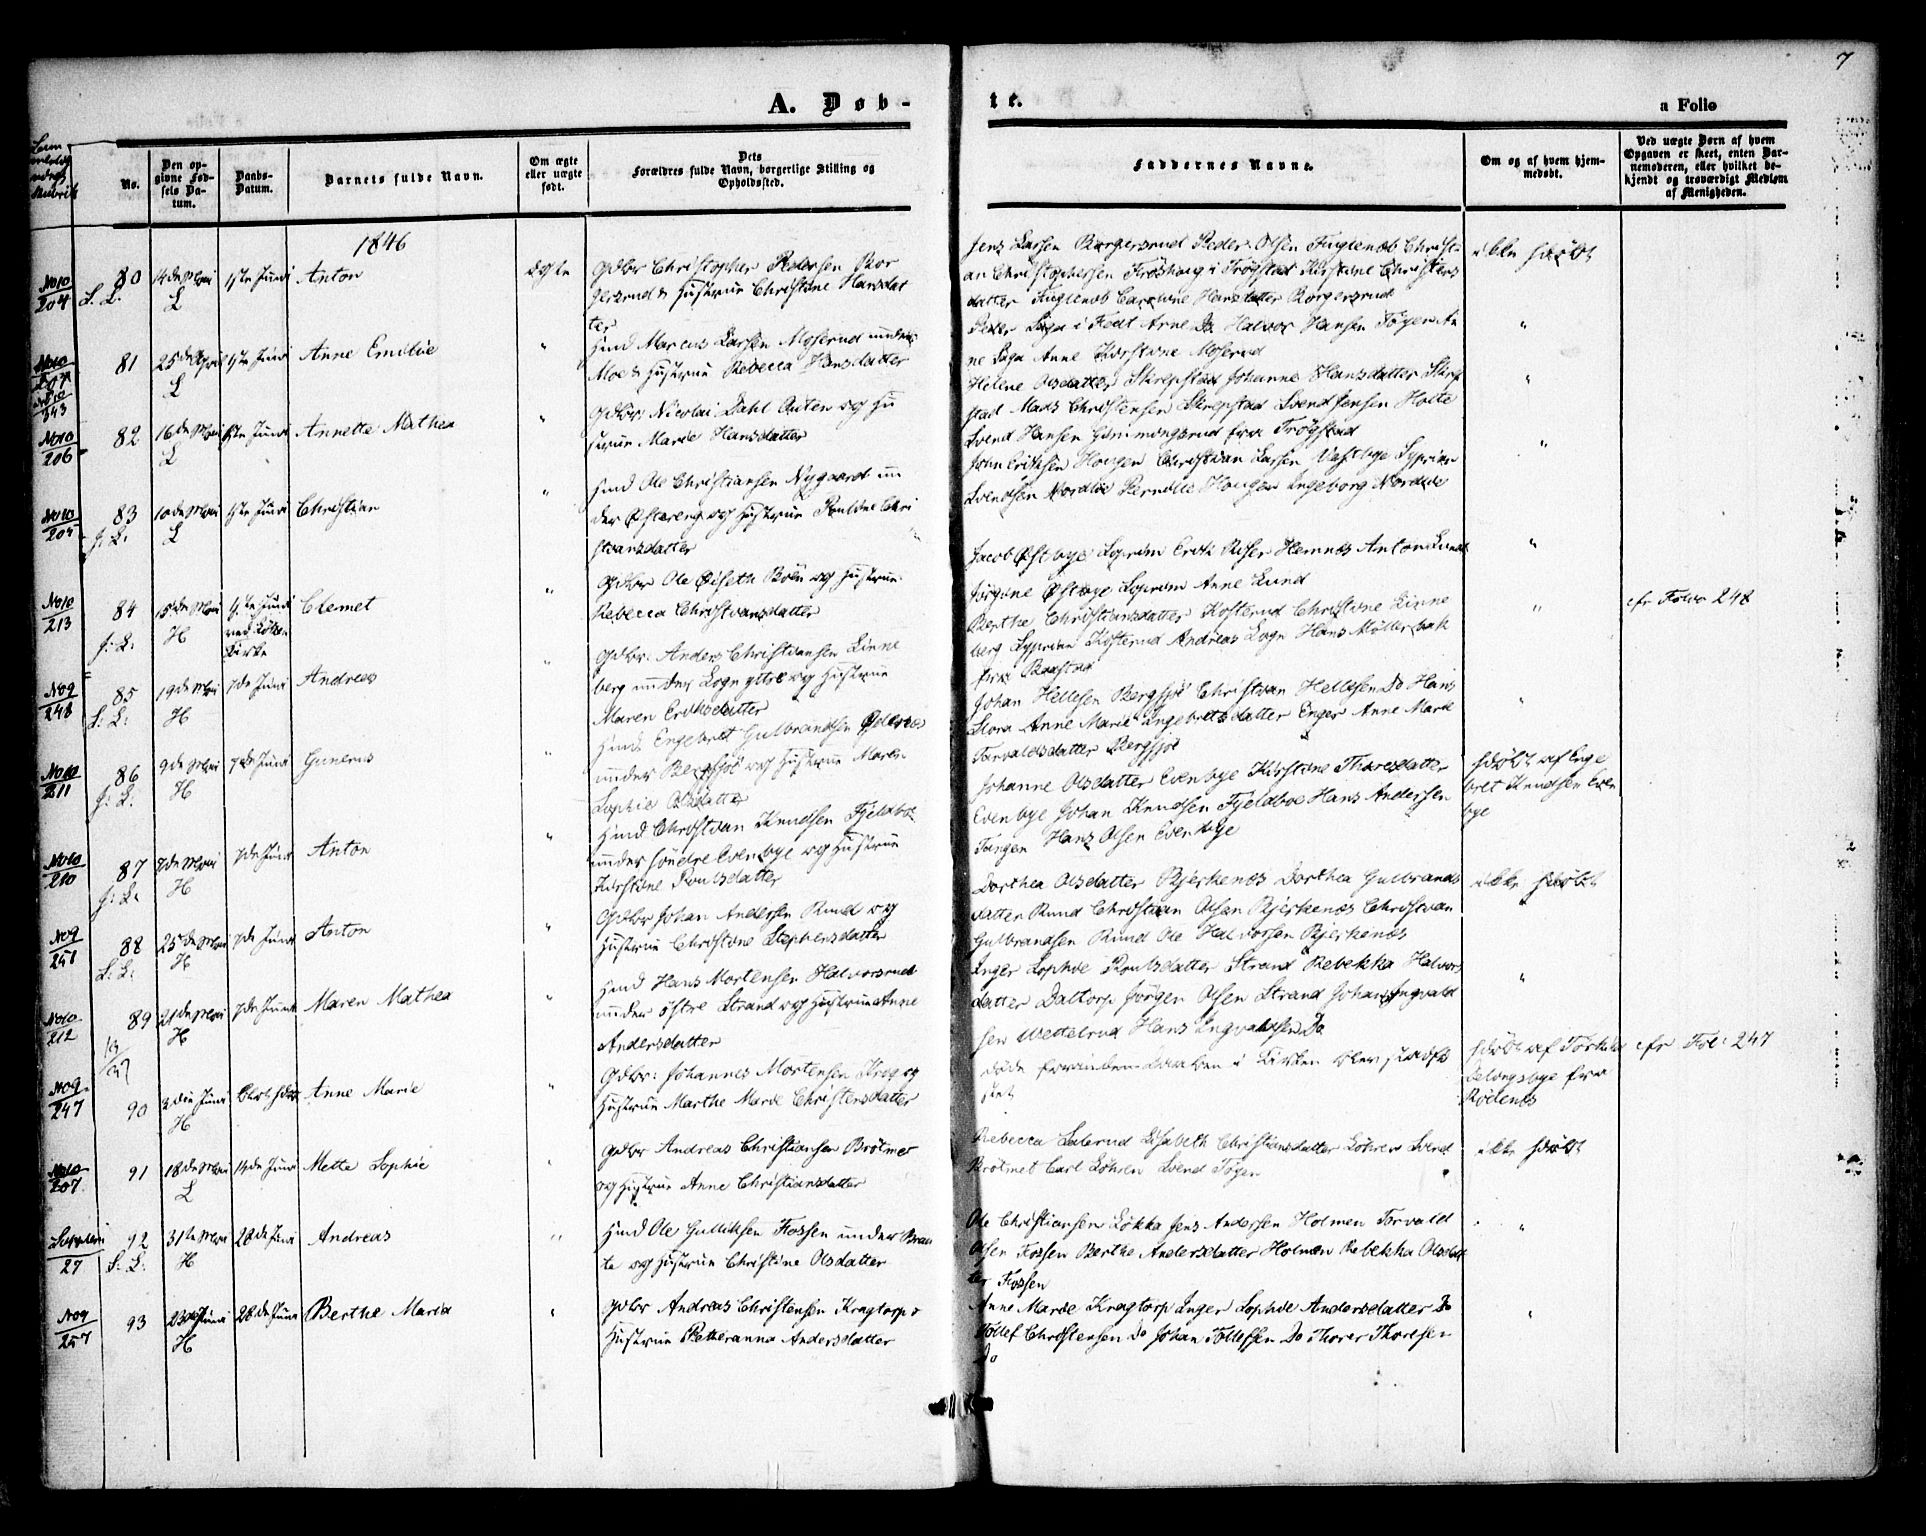 7
A. Døb-
te.
a Folio
No.
Den op-
givne Fød-
sels Da-
tum.
Daabs-
Datum.
Barnets fulde Navn.
Om ægte
eller uægte
født.
Dets
Forældres fulde Navn, borgerlige Stilling og
Opholdssted.
Faddernes Navne.
Om og af hvem hjem-
medøbt.
Ved uægte Børn af hvem
Opgaven er skeet, enten Bar-
nemoderen, eller hvilket be-
kjendt og troværdigt Medlem
af Menigheden.
1846
No 10
204
80
14de Mai
L
1ste Juni
Anton
ægte
Gdbr Christopher Pedersen Bor
gersrud & Hustrue Christine Hansdat
ter
Jens Larsen Borgersrud Peder Olsen Fuglenæb Christi
an Christophersen Frøshaug i Trøgstad Kirstine Christens
datter Fuglenæb Caroline Hansdatter Borgersrud
ikke hdøbt
81
25de April
L
1ste Juni
Anne Emilie
"
Hmd Marcus Larsen Moserud under
Moe & Hustrue Rebecca Hansdatter
Peder Saga i Fedt Arne Do Halvor Hansen Tøyen An
ne Saga Anne Kirstine Moserud
"
No 10
206
82
16de Mai
L
1ste Juni
Annette Mathea
"
Gdbr Nicolai Dahl Outen og Hu
strue Marie Hansdatter
Helene Olsdatter Skirepstad Johanne Hansdatter Skirep
stad Mads Christensen Skirepstad Svend Jensen Holte
Svend Hansen Gimmingsrud fra Trøgstad
"
No 10
83
10de Mai
L
1ste Juni
Christian
"
Hmd Ole Christiansen Nygaard un
der Østereng og Hustrue Pauline Chri
stiansdatter
John Eriksen Hougen Christian Larsen Vestbye Syprian
Svendsen Nordlie Pernille Hougen Ingeborg Nordlie
"
No 10
213
84
15de Mai
H
1ste Juni
Kirke
Clemet
"
Gdbr Ole Øiseth Bøen og Hustrue
Rebecca Christiansdatter
Jacob Østbye Syprian Erik Riser Hemnæs Anton Lund
Jørgine Østbye Syprian Anne Lund
"
cfr Folio 248
No 9
248
85
19de Mai
H
7de Juni
Andreas
"
Gdbr: Anders Christiansen Linne
berg under Sogn yttre og Hustrue
Maren Eriksdatter
Berthe Christiansdatter Kosterud Christine Linne
berg Syprian Kosterud Andreas Sogn Hans Møllerbak
fra Baastad
"
No 10
211
86
9de Mai
H
7de Juni
Gunerus
"
Hmd: Engebret Gulbrandsen Ødenæs
under Bergsjø og Hustrue Maren
Sophie Olsdatter
Johan Hellesen Bergsjø Christian Hellesen Do Hans
Slora Anne Marie Ingebretsdatter Enger Anne Marie
Torvaldsdatter Bergsjø
hdøbt af Enge
bret Knudsen Even
bye
No 10
210
87
7de Mai
H
7de Juni
Anton
"
Hmd Christian Knudsen Fjeldboe
under søndre Evenbye og Hustrue
Kirstine Poulsdatter
Johanne Olsdatter Evenbye Kirstine Thoresdatter
Evenbye Johan Knudsen Fjeldboe Hans Andersen
Tangen Hans Olsen Evenbye
No 9
251
88
25de Mai
H
7de Juni
Anton
"
Gdbr Johan Andersen Rund og
Hustrue Christine Stephensdatter
Dorthea Olsdatter Bjerkenæs Dorthea Gulbrands
datter Rund Christian Olsen Bjerkenæs Christian
Gulbrandsen Rund Ole Halvorsen Bjerkenæs
ikke hdøbt
No 10
212
89
21de Mai
H
7de Juni
Maren Mathea
"
Hmd Hans Mortensen Halvorsrud
under østre Strand og Hustrue Anne
Andersdatter
Inger Sophie Poulsdatter Strand Rebekka Halvors
datter Daltorp Jørgen Olsen Strand Johan Ingvald
sen Wettelrud Hans Ingvaldsen Do
"
No 9
247
90
2den Juni
H
Anne Marie
"
Gdbr: Johannes Mortensen Krog og
Hustrue Marthe Marie Christensdatter
døde forinden Daaben i Kirken blev stadfæ
stet
hdøbt af Torkild
fra
Rødenæs
cfr Fol: 247
No 10
207
91
18de Mai
L
14de Juni
Mette Sophie
"
Gdbr Andreas Christiansen Brötmet
og Hustrue Anne Christiansdatter
Rebecca Salerud Elisabeth Christiansdatter Løhren Svend
Brötmet Carl Løhren Svend Tøyen
ikke hdøbt
27
92
31te Mai
H
28de Juni
Andreas
"
Hmd Ole Gulliksen Fossen under Braa
te og Hustrue Christine Olsdatter
Ole Christiansen Løkka Jens Andersen Holmen Torvald
Olsen Fossen Berthe Andersdatter Holmen Rebekka Olsdat
ter Fossen
"
No 9
257
93
23de Juni
H
28de Juni
Berthe Maria
"
Gdbr Andreas Christensen Kragtorp &
Hustrue Petheranna Andersdatter
Anne Marie Kragtorp Inger Sophie Andersdatter Do
Tollef Christensen Do Johan Tollefsen Do Thorer Thoresen
Do
"